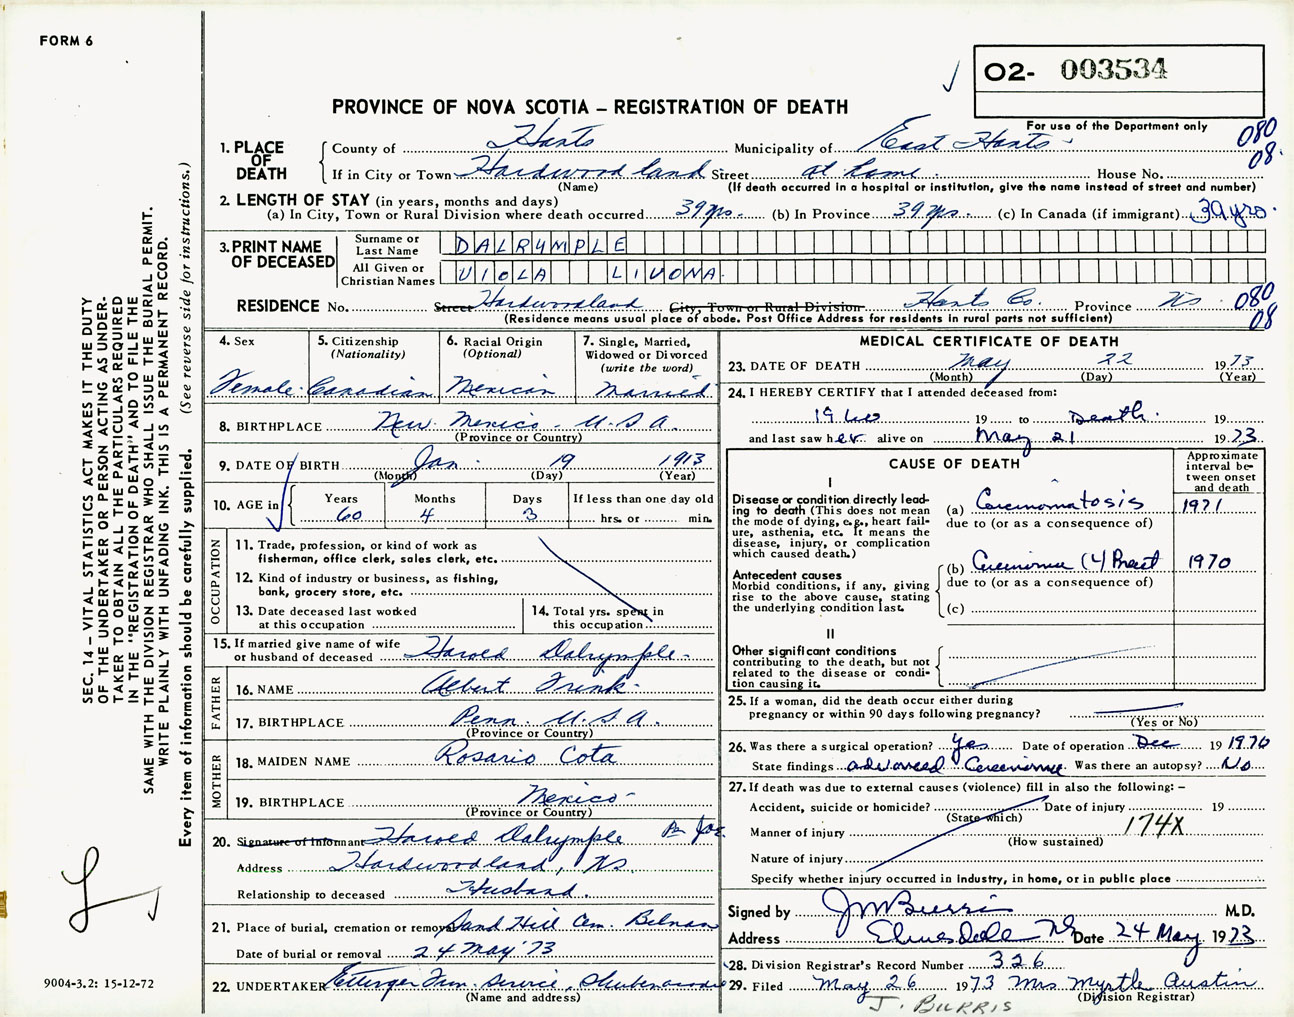 FORM 6
O2- 003534
PROVINCE OF NOVA SCOTIA – REGISTRATION OF DEATH
For use of the Department only
080
08.
1. PLACE OF DEATH
County of Hants Municipality of East Hants
If in City or Town Hardwoodland Street at home House No.
(Name) (If death occurred in a hospital or institution, give the name instead of street and number)
2. LENGTH OF STAY (in years, months and days)
(a) In City, Town or Rural Division where death occurred 39 yrs. (b) In Province 39 yrs. (c) In Canada (if immigrant) 39 yrs.
3. PRINT NAME OF DECEASED
Surname or Last Name DALRYMPLE
All Given or Christian Names VIOLA LIVONA
RESIDENCE No. Street Hardwoodland City, Town or Rural Division Hants Co. Province NS
080
08
(Residence means usual place of abode. Post Office Address for residents in rural parts not sufficient)
4. Sex Female
5. Citizenship (Nationality) Canadian
6. Racial Origin (Optional) Mexican
7. Single, Married, Widowed or Divorced (write the word) Married
8. BIRTHPLACE New Mexico U.S.A.
(Province or Country)
9. DATE OF BIRTH Jan. 19 1913
(Month) (Day) (Year)
10. AGE in Years 60 Months 4 Days 3 If less than one day old hrs. or min.
OCCUPATION
11. Trade, profession, or kind of work as fisherman, office clerk, sales clerk, etc.
12. Kind of industry or business, as fishing, bank, grocery store, etc.
13. Date deceased last worked at this occupation
14. Total yrs. spent in this occupation
15. If married give name of wife or husband of deceased Harold Dalrymple
FATHER
16. NAME Albert Frink
17. BIRTHPLACE Penn. U.S.A.
(Province or Country)
MOTHER
18. MAIDEN NAME Rosario Cota
19. BIRTHPLACE Mexico
(Province or Country)
20. Signature of Informant Harold Dalrymple
Address Hardwoodland, NS.
Relationship to deceased Husband.
21. Place of burial, cremation or removal Sand Hill Cem. Belnan
Date of burial or removal 24 May '73
22. UNDERTAKER Ettinger Fun. Service, Shubenacadie
(Name and address)
MEDICAL CERTIFICATE OF DEATH
23. DATE OF DEATH May 22 1973
(Month) (Day) (Year)
24. I HEREBY CERTIFY that I attended deceased from:
1960 19 to Death. 19
and last saw her alive on May 21 1973
CAUSE OF DEATH
Approximate interval between onset and death
I
Disease or condition directly leading to death (This does not mean the mode of dying, e.g., heart failure, asthenia, etc. It means the disease, injury, or complication which caused death.)
(a) Carcinomatosis 1971
due to (or as a consequence of)
Antecedent causes
Morbid conditions, if any, giving rise to the above cause, stating the underlying condition last.
(b) Carcinoma (L) Breast 1970
due to (or as a consequence of)
(c)
II
Other significant conditions
contributing to the death, but not related to the disease or condition causing it.
25. If a woman, did the death occur either during pregnancy or within 90 days following pregnancy?
(Yes or No)
26. Was there a surgical operation? Yes Date of operation Dec 19 1970
State findings advanced Carcinoma Was there an autopsy? No
27. If death was due to external causes (violence) fill in also the following: –
Accident, suicide or homicide? Date of injury 19
(State which)
Manner of injury 174X
(How sustained)
Nature of injury
Specify whether injury occurred in industry, in home, or in public place
Signed by J M Burris M.D.
Address Elmsdale NS Date 24 May 1973
28. Division Registrar's Record Number 326
29. Filed May 26 1973 Mrs Myrtle Austin
(Division Registrar)
J. BURRIS
SEC. 14 – VITAL STATISTICS ACT MAKES IT THE DUTY
OF THE UNDERTAKER OR PERSON ACTING AS UNDER-
TAKER TO OBTAIN ALL THE PARTICULARS REQUIRED
IN THE "REGISTRATION OF DEATH" AND TO FILE THE
SAME WITH THE DIVISION REGISTRAR WHO SHALL ISSUE THE BURIAL PERMIT.
WRITE PLAINLY WITH UNFADING INK. THIS IS A PERMANENT RECORD.
Every item of information should be carefully supplied. (See reverse side for instructions.)
9004-3.2: 15-12-72